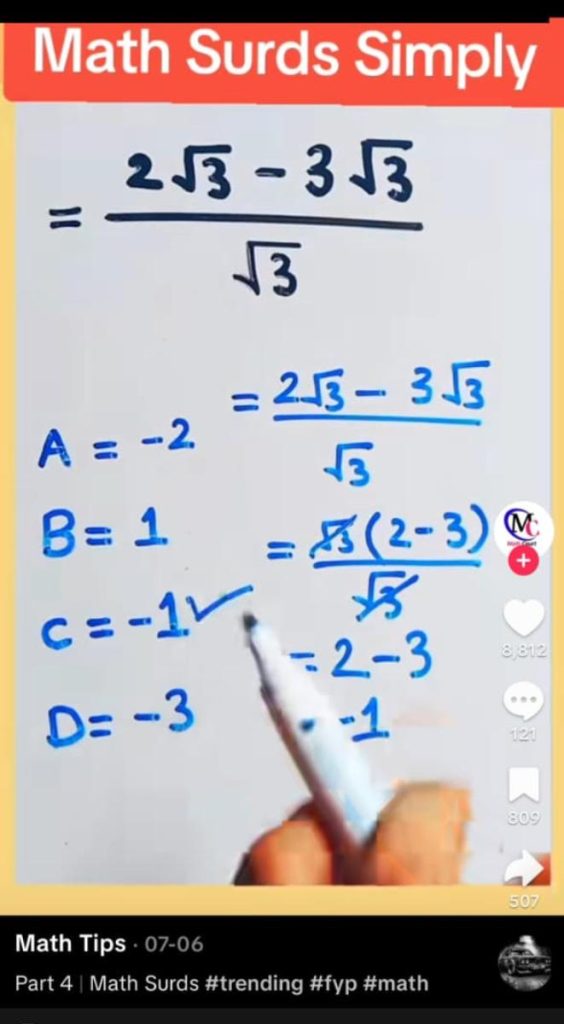 Math Surds Simply
= 2√3 - 3√3
√3
= 2√3 - 3√3
√3
A = -2
B = 1
C = -1✓
D = -3
= √3(2-3)
√3
= 2-3
-1
8,812
121
809
507
Math Tips · 07-06
Part 4 | Math Surds #trending #fyp #math